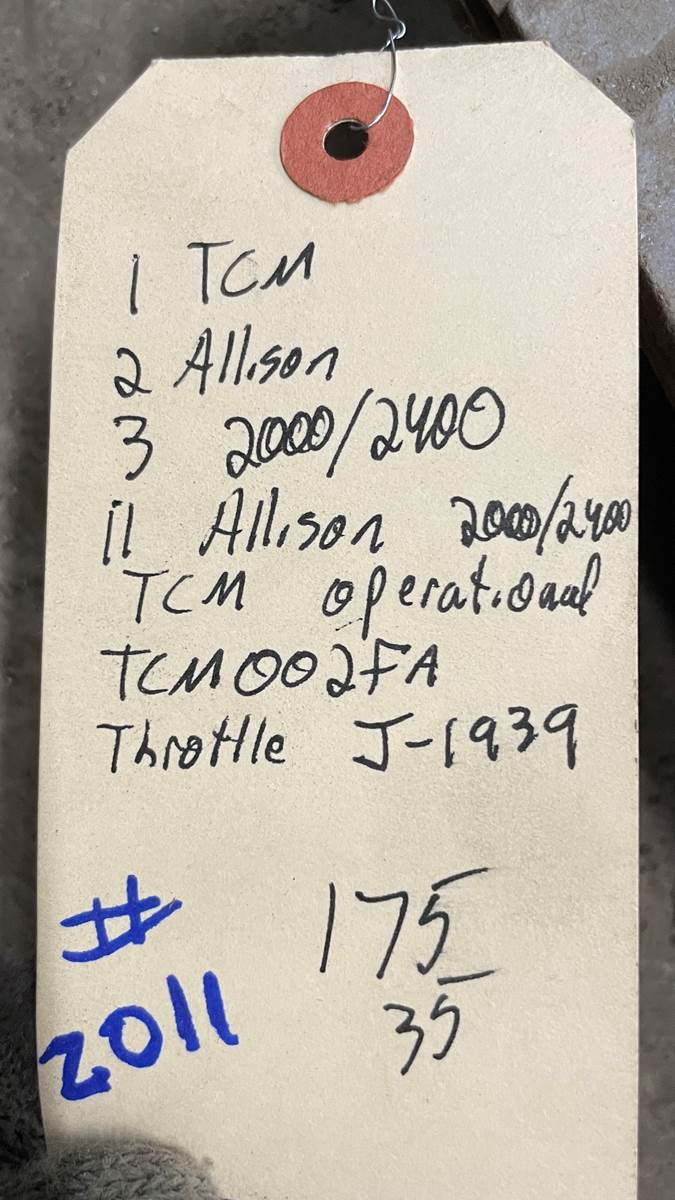 1 TCM
2 Allison
3 2000/2400
11 Allison 2000/2400
TCM operational
TCM002FA
Throttle J-1939
# 175
2011 35